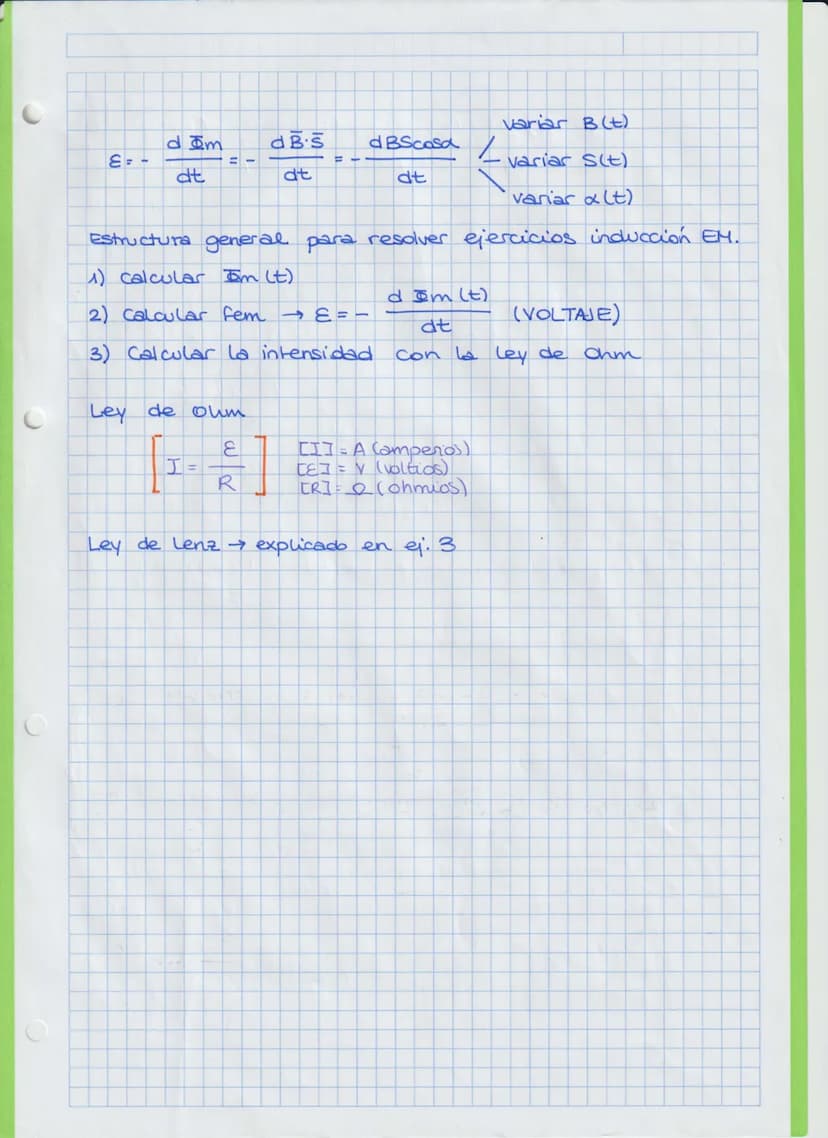 variar B(t)
ε = - d Φm / dt = - d B̄·S̄ / dt = - dBScosα / dt variar S(t)
variar α(t)
Estructura general para resolver ejercicios inducción EM.
1) Calcular Φm (t)
2) Calcular fem → ε = - d Φm (t) / dt (VOLTAJE)
3) Calcular la intensidad con la ley de Ohm
Ley de Ohm
[ I = ε / R ]
[I] = A (amperios)
[ε] = V (voltios)
[R] = Ω (ohmios)
Ley de Lenz → explicado en ej. 3